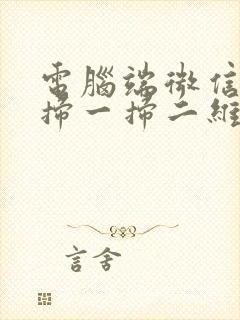 電腦端微信
掃一掃二維
言舍